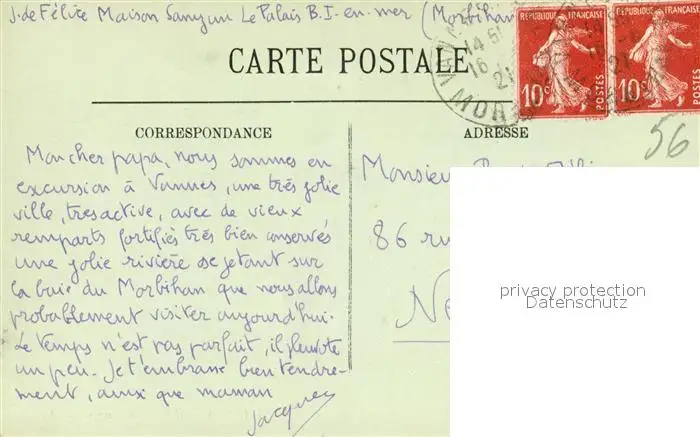 J. de Félice Maison Le Palais B.I-en-mer (Morbihan
RÉPUBLIQUE FRANÇAISE
10c POSTES
RÉPUBLIQUE FRANÇAISE
10c POSTES
CARTE POSTALE
56
CORRESPONDANCE
ADRESSE
Mon cher papa, nous sommes en
excursion à Vannes, une très jolie
ville, très active, avec de vieux
remparts fortifiés très bien conservés
une jolie rivière se jetant sur
la baie du Morbihan que nous allons
probablement visiter aujourd'hui.
Le temps n'est pas parfait, il pleuvote
un peu. Je t'embrasse bien tendre-
ment, ainsi que maman
Jacques
Monsieur
86 ru
Ne
privacy protection
Datenschutz